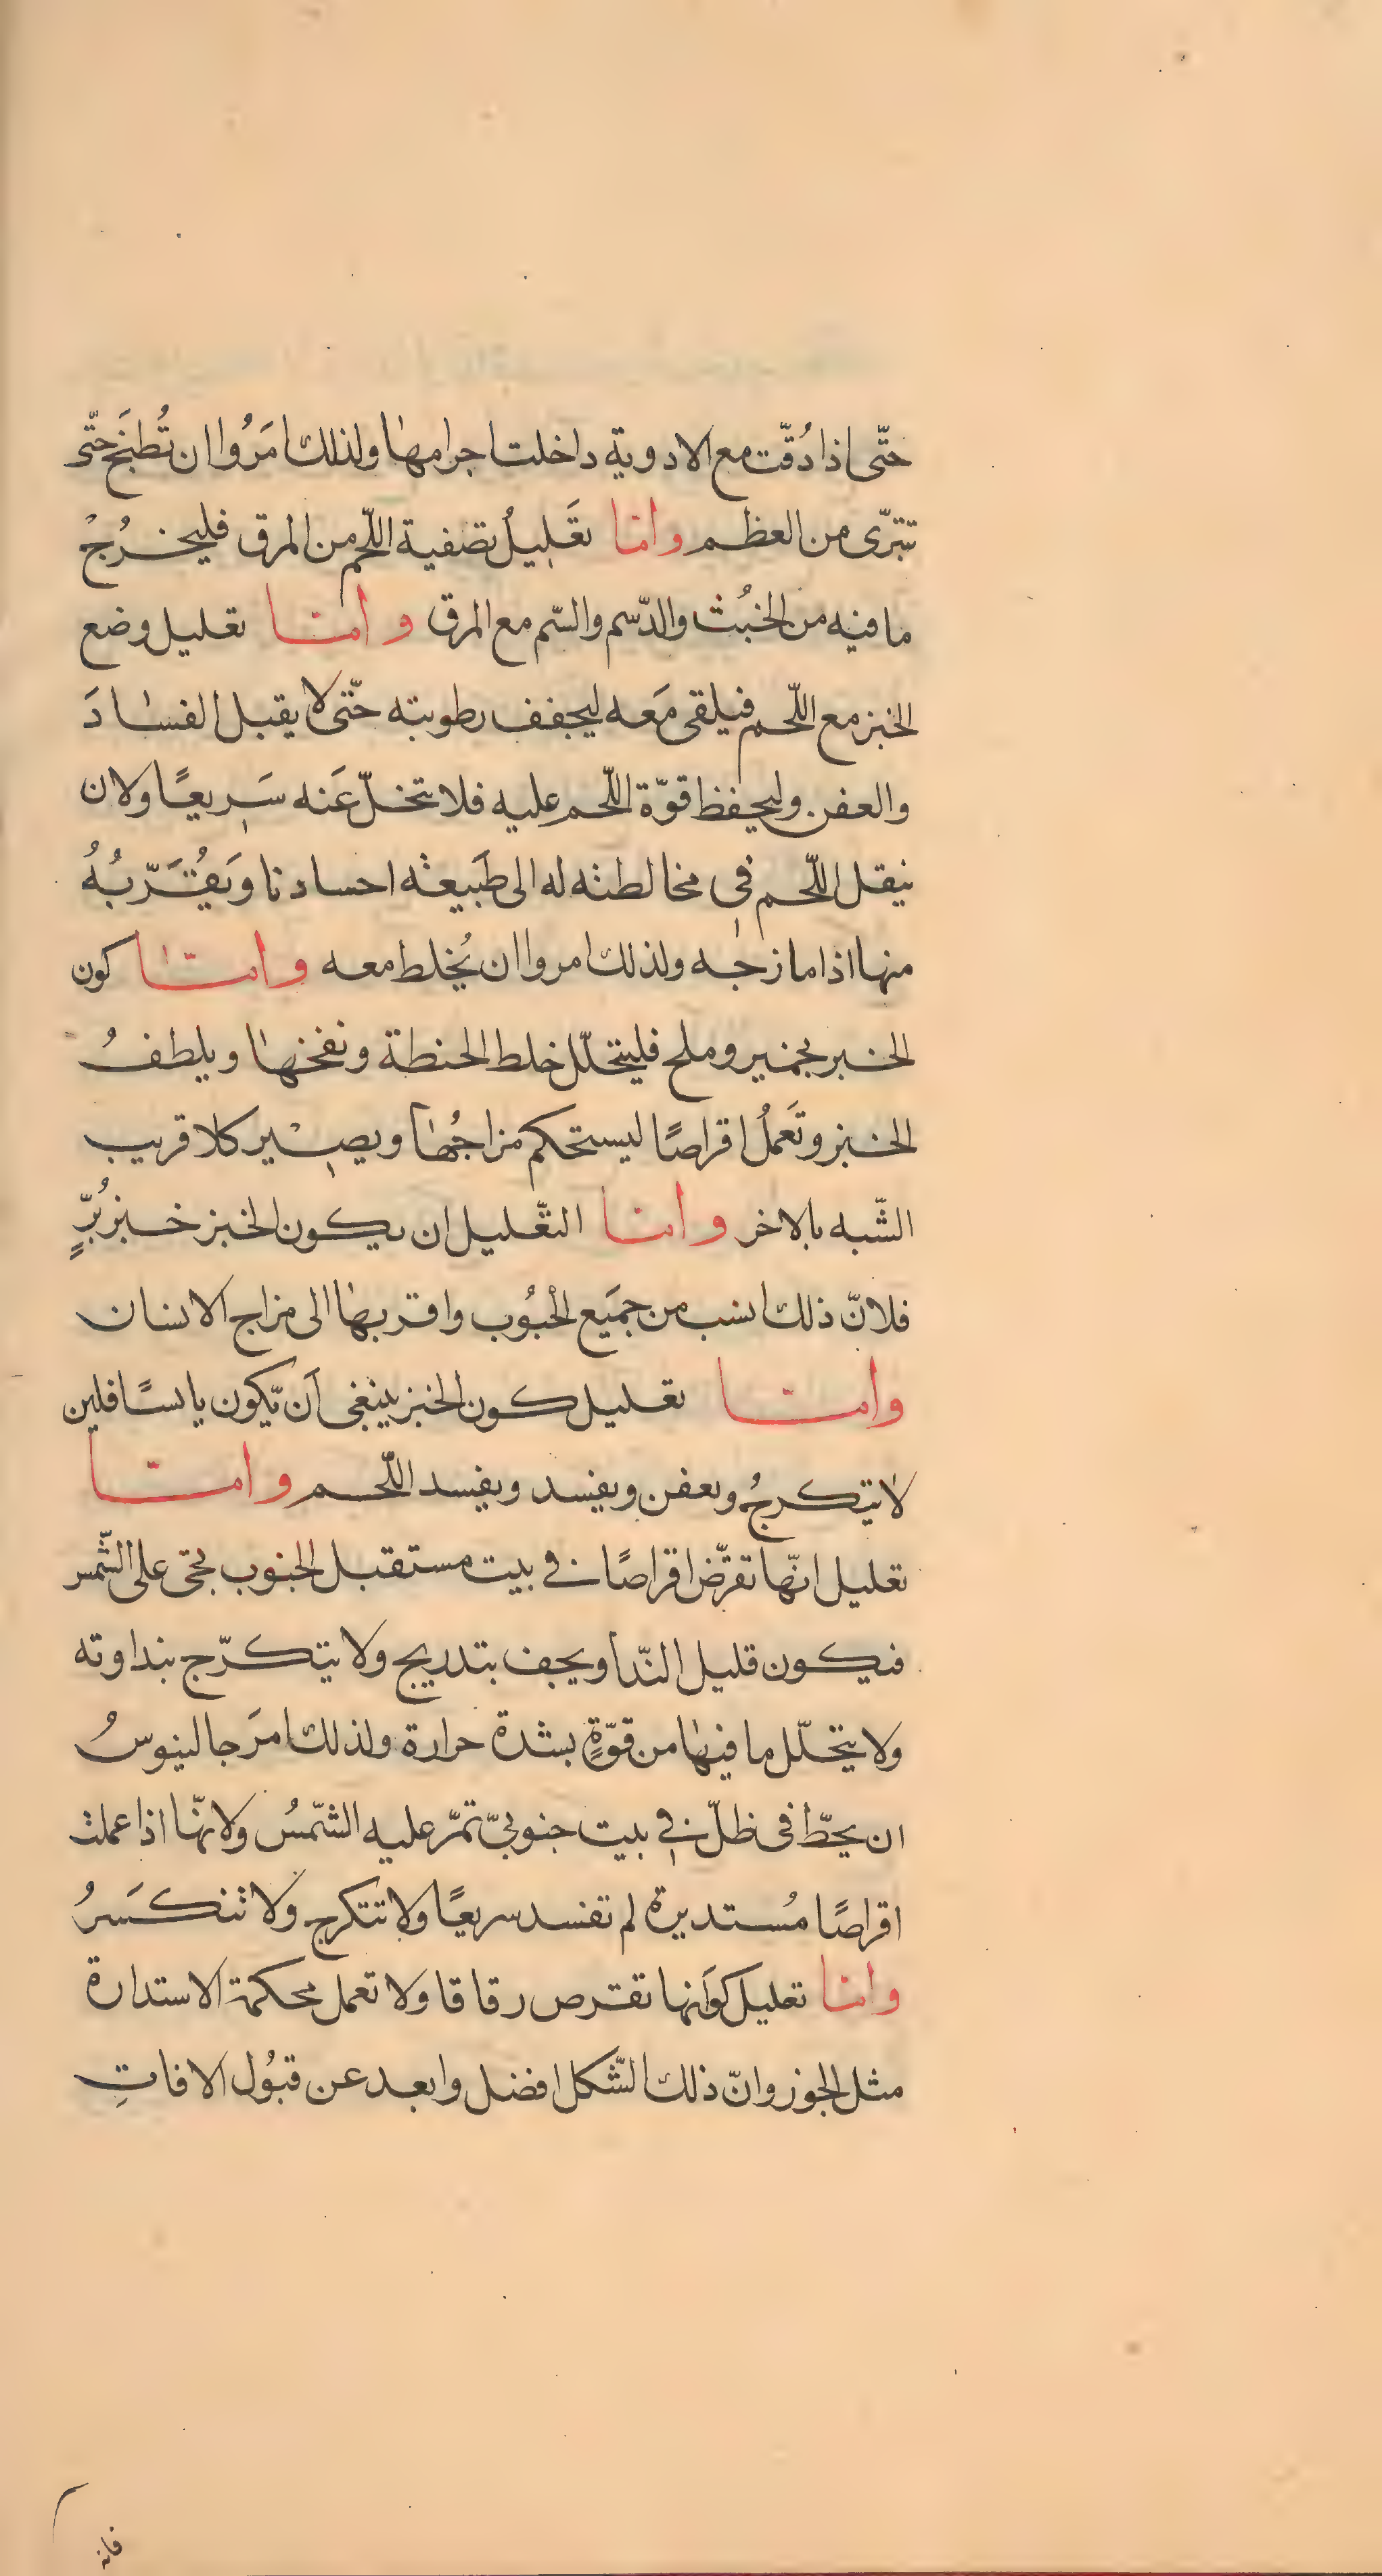 حتّى اذا دُقّت مع الادوية داخلت اجرامها ولذلك امَرُوا ان تُطبَخ حتّى
تتبرّى من العظم وامّا تعَليلُ تصفية اللّحم من المرق فليخرُجْ
ما فيه من الخبُث والدّسم والسّم مع المرق وامّا تعليل وضع
الخبز مع اللّحم فيلقى مَعه ليجفف رطوبته حتّى لا يقبل الفسادَ
والعفن وليحفظ قوّة اللّحم عليه فلا تتحلّ عَنه سَرِيعًا ولان
ينقل اللّحم فى مخالطته له الى طَبيعته اجسادنا وَيُقَرّبُهُ
منها اذا مازجه ولذلك امروا ان يُخلط معه وامّا كون
الخبز بخمير وملح فليتحلّل خلط الحنطة ونفخها ويلطفُ
الخبز وتَعملُ اقراصًا ليستحكم مزاجُها ويصير كلا قريب
الشّبه بالاخر وامّا التعّليل ان يكون الخبز خبز بُرٍّ
فلانّ ذلك انسب من جميَع الحْبُوب واقربها الى مزاج الانسان
وامّا تعليل كون الخبز ينبغى اَن يّكون يابسًا فلين
لا يتكرجُ ويعفن ويفسد ويفسد اللّحم وامّا
تعليل انّها تقرّض اقراصًا فى بيت مستقبل الجنوب بحتى على الشّمس
فيكون قليل النّدا ويجف بتدريج ولا يتكرّج بنداوته
ولا يتحلّل ما فيها من قوّةٍ بشدة حرارة ولذلك امَر جالينوسُ
ان يحطّ فى ظلّ فى بيت جنوبىّ تمرّ عليه الشّمسُ ولانّها اذا عملت
اقراصًا مُستديرة لم تفسد سريعًا ولا تتكرج ولا تنكسَرُ
وامّا تعليل كَونها تقرص رقاقا ولا تعمل محكمة الاستدارة
مثل الجوز وانّ ذلك الشّكل افضل وابعد عن قبُول الافاتِ
فانه